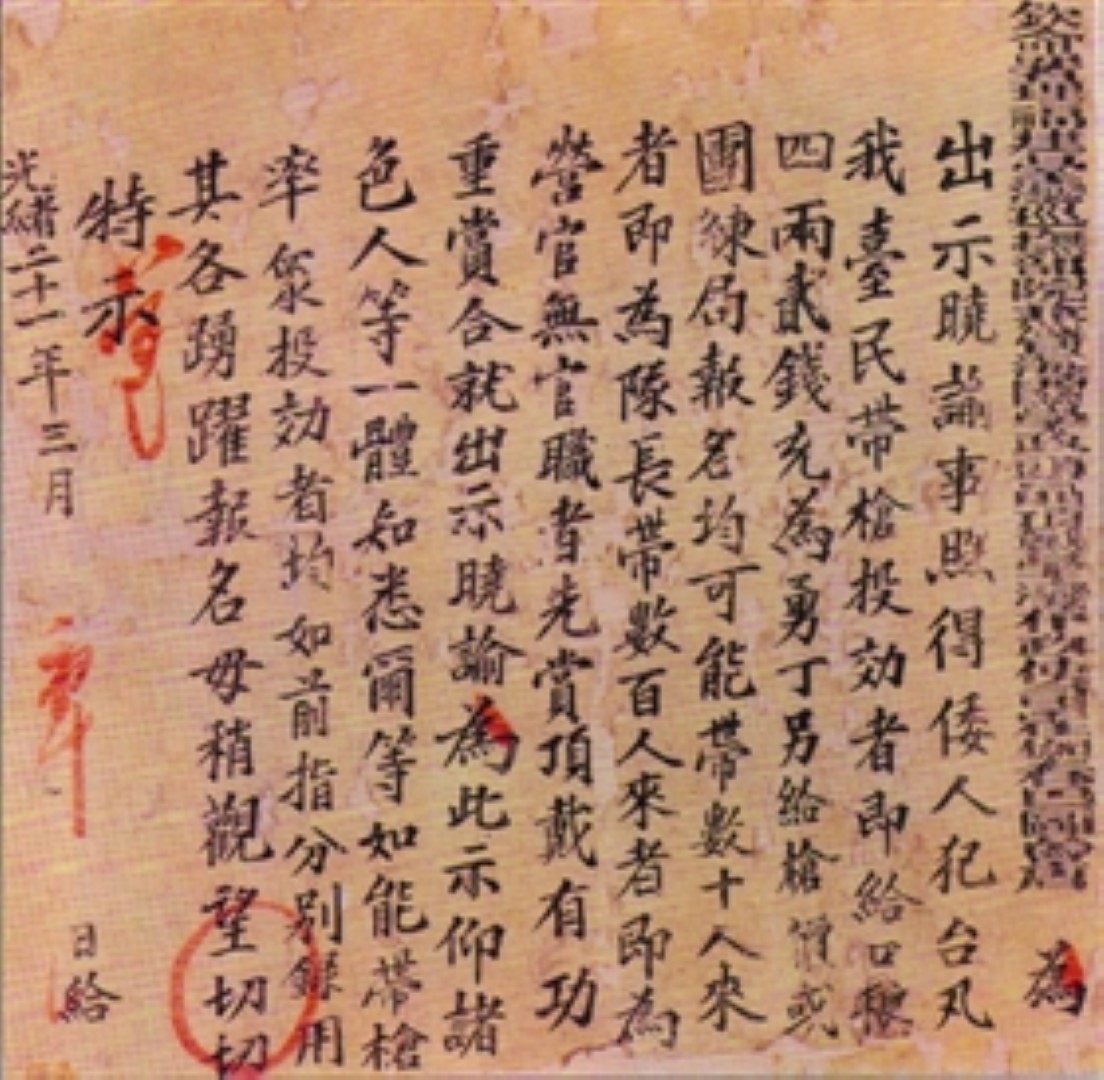 為
出示曉諭事照得倭人犯台凡
我臺民带槍投効者即給口糧
四兩貳錢充為勇丁另給槍價或
團練局報名均可能帶數十人來
者即為隊長帶數百人來者即為
營官無官職者先賞頂戴有功
重賞合就出示曉諭為此示仰諸
色人等一體知悉爾等如能帶槍
率眾投効者均如前指分別錄用
其各踴躍報名毋稍觀望切切
特示
光緒二十一年三月 日給